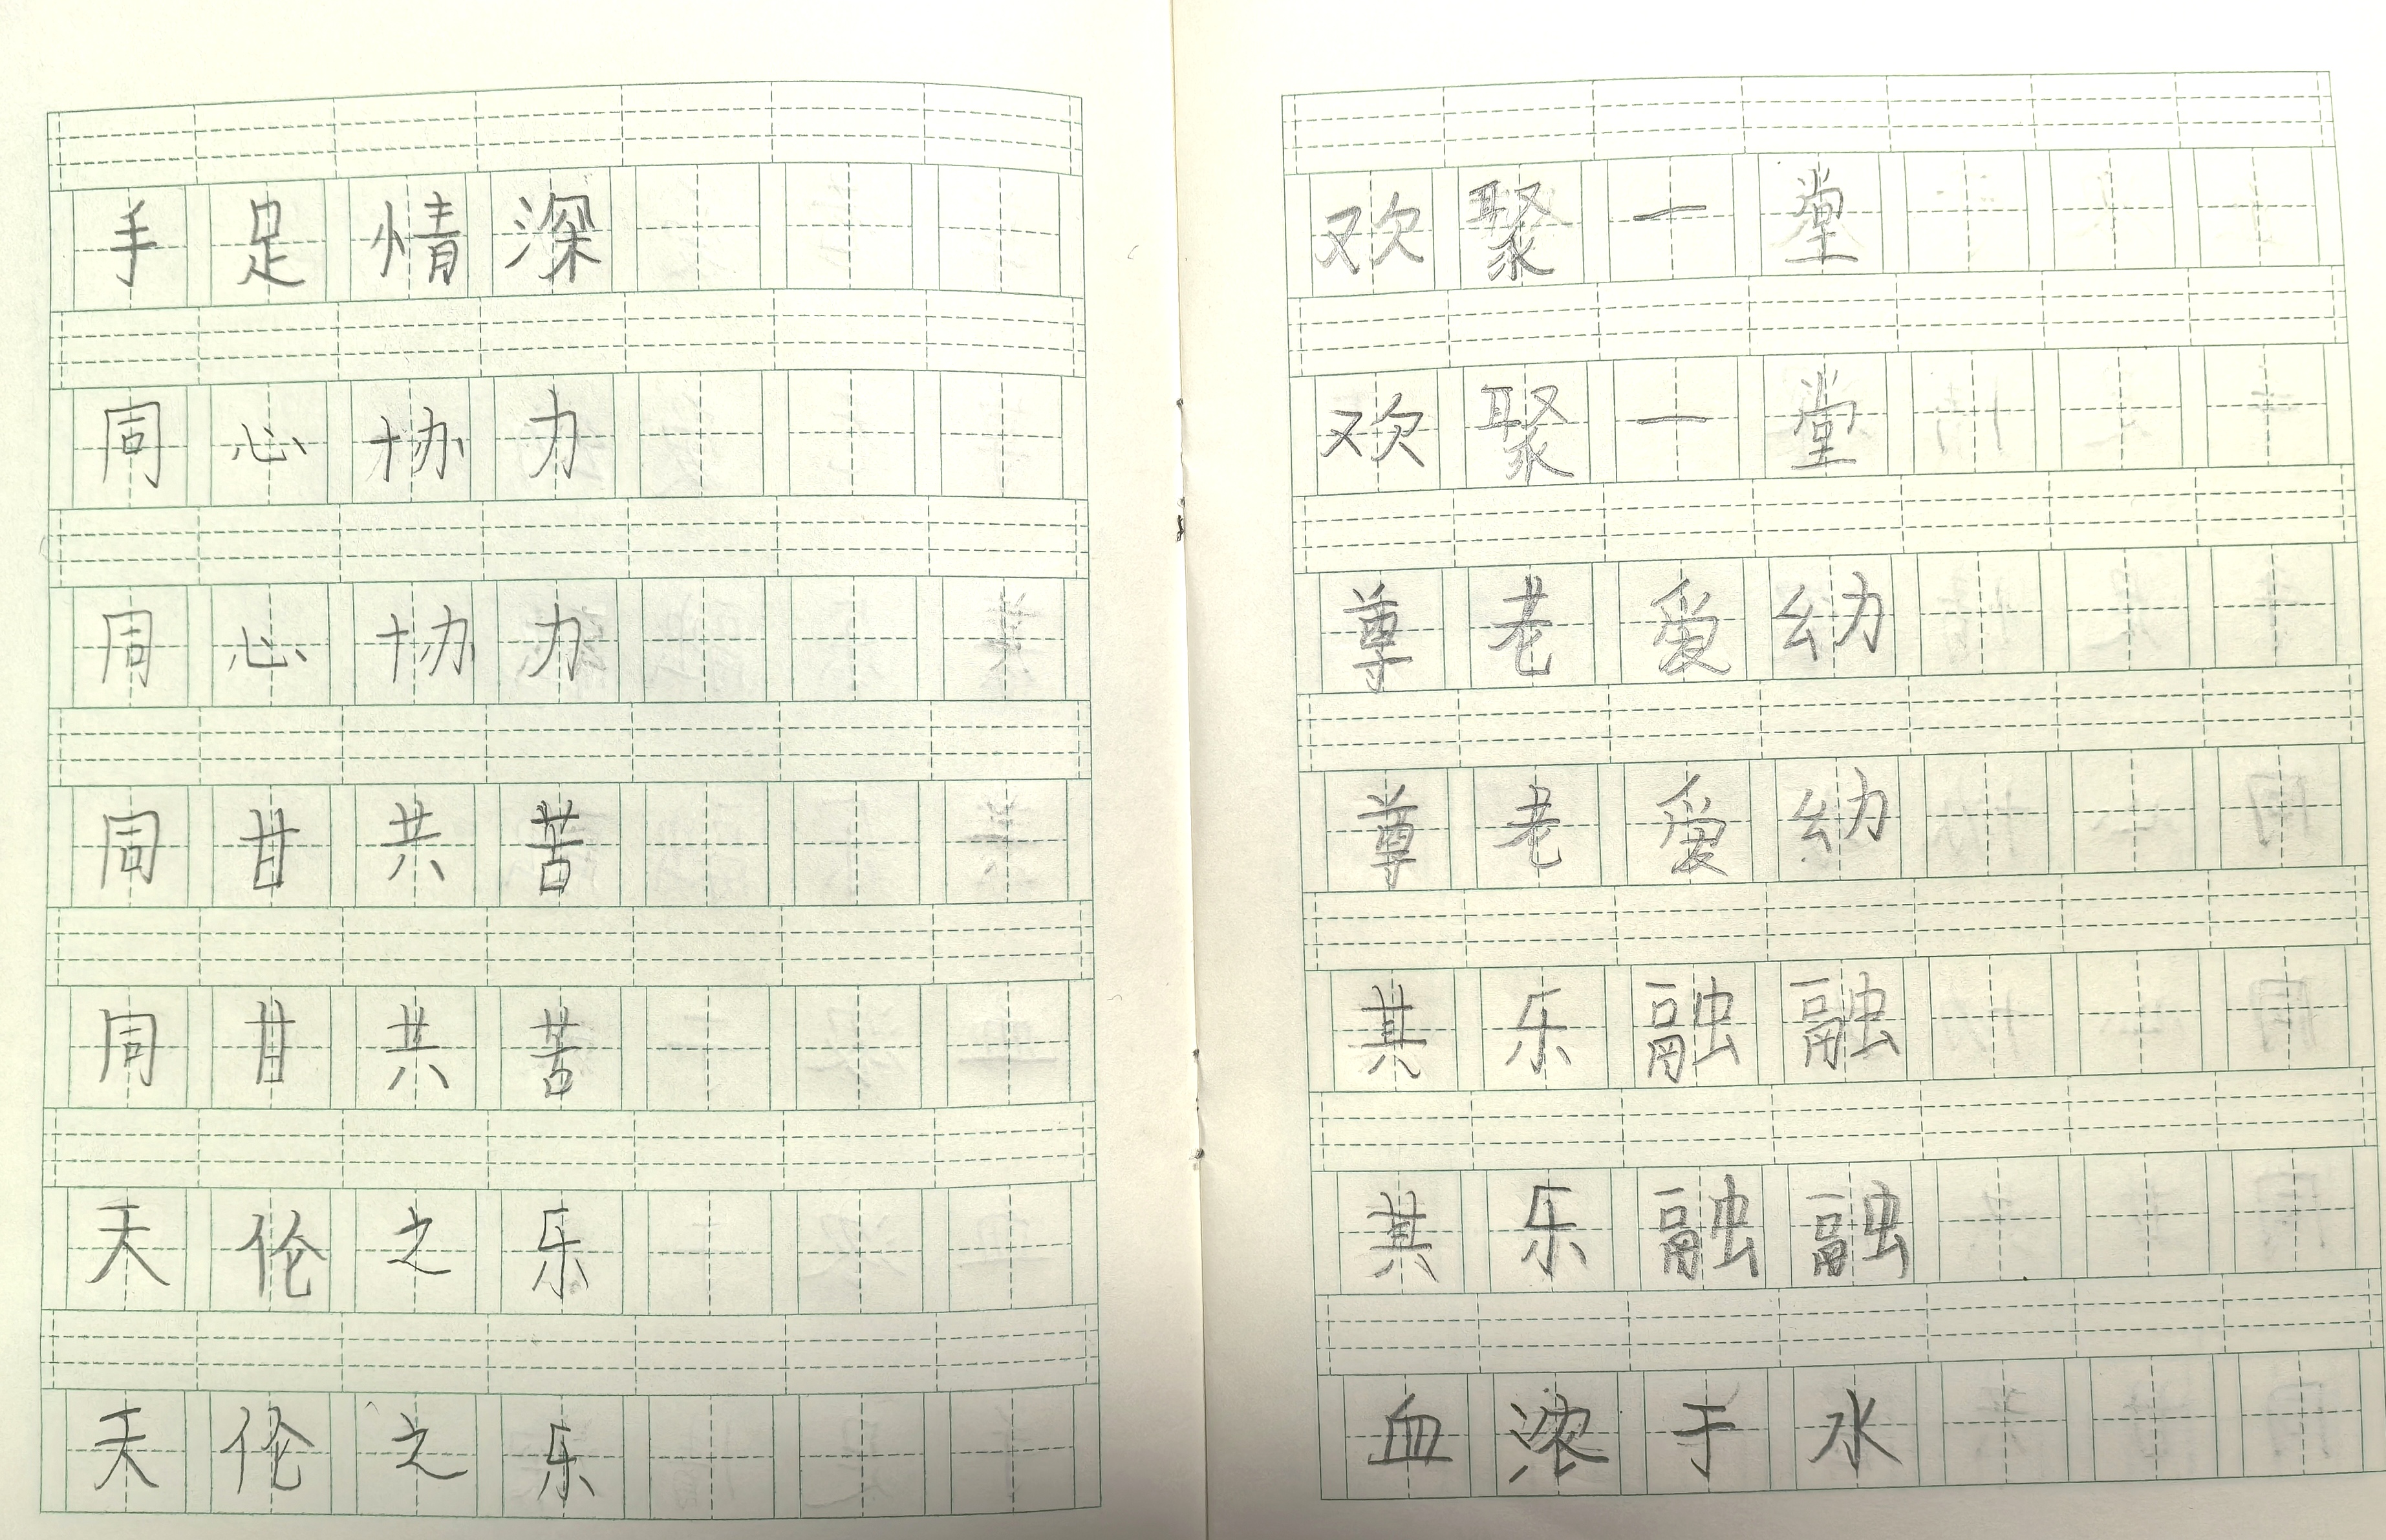 手足情深
同心协力
同心协力
同甘共苦
同甘共苦
天伦之乐
天伦之乐
欢聚一堂
欢聚一堂
尊老爱幼
尊老爱幼
其乐融融
其乐融融
血浓于水